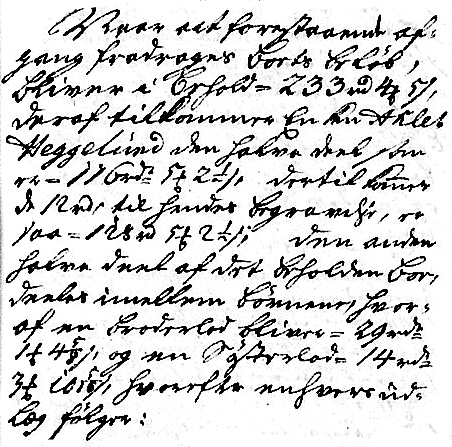 Naar alt forestaaende af-
gang fradrages boets beløb,
bliver i behold = 233 rd 4 ꝑ 5 s,
deraf tilkommer Enken Aklet
Heggelund den halve deel som
er = 116 rdr 5 ꝑ 2½ s, dertil kommer
de 12 rdr til hendes begravelse, er
saa = 128 rd 5 ꝑ 2½ s; den anden
halve deel af det beholden boe,
deeles imellem børnene, hvor-
af en broderlod bliver = 29 rdr
1 ꝑ s, og en Søsterlod = 14 rdr
3 ꝑ s, hvorefter enhvers ud-
læg følger: